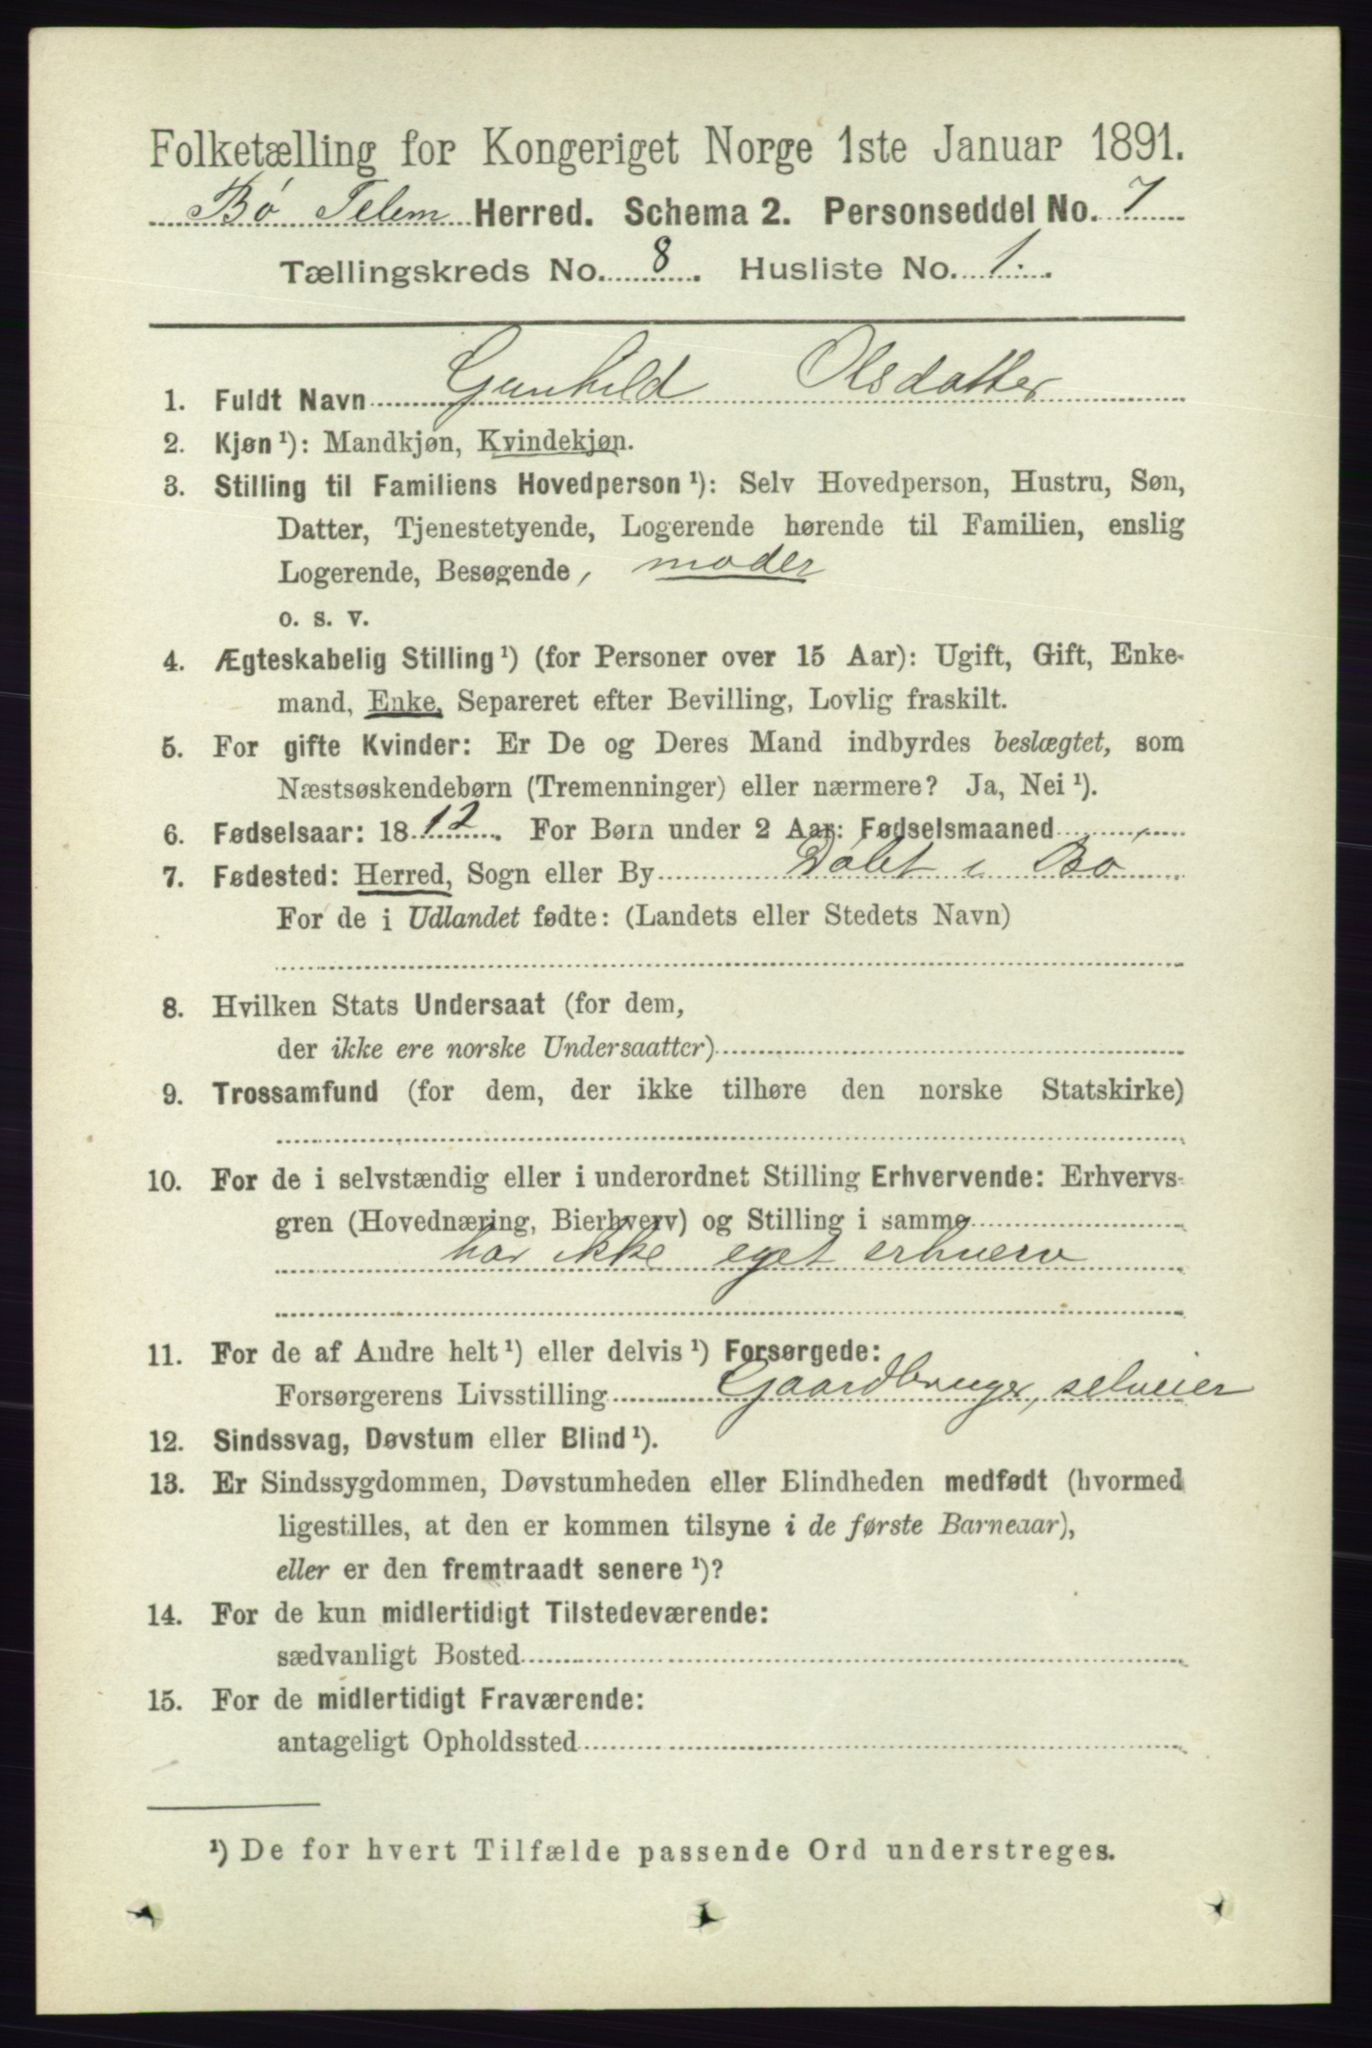 Folketælling for Kongeriget Norge 1ste Januar 1891.
Bø Telem Herred. Schema 2. Personseddel No. 7
Tællingskreds No. 8. Husliste No. 1.
1. Fuldt Navn Gunhild Olsdatter
2. Kjøn¹): Mandkjøn, Kvindekjøn.
3. Stilling til Familiens Hovedperson¹): Selv Hovedperson, Hustru, Søn,
Datter, Tjenestetyende, Logerende hørende til Familien, enslig
Logerende, Besøgende, moder
o. s. v.
4. Ægteskabelig Stilling¹) (for Personer over 15 Aar): Ugift, Gift, Enke-
mand, Enke, Separeret efter Bevilling, Lovlig fraskilt.
5. For gifte Kvinder: Er De og Deres Mand indbyrdes beslægtet, som
Næstsøskendebørn (Tremenninger) eller nærmere? Ja, Nei¹).
6. Fødselsaar: 1812. For Børn under 2 Aar: Fødselsmaaned
7. Fødested: Herred, Sogn eller By Dølet i Bø
For de i Udlandet fødte: (Landets eller Stedets Navn)
8. Hvilken Stats Undersaat (for dem,
der ikke ere norske Undersaatter)
9. Trossamfund (for dem, der ikke tilhøre den norske Statskirke)
10. For de i selvstændig eller i underordnet Stilling Erhvervende: Erhvervs-
gren (Hovednæring, Bierhverv) og Stilling i samme
har ikke eget erhverv
11. For de af Andre helt¹) eller delvis¹) Forsørgede:
Forsørgerens Livsstilling Gaardbruger, selveier
12. Sindssvag, Døvstum eller Blind¹).
13. Er Sindssygdommen, Døvstumheden eller Blindheden medfødt (hvormed
ligestilles, at den er kommen tilsyne i de første Barneaar),
eller er den fremtraadt senere¹)?
14. For de kun midlertidigt Tilstedeværende:
sædvanligt Bosted
15. For de midlertidigt Fraværende:
antageligt Opholdssted
¹) De for hvert Tilfælde passende Ord understreges.